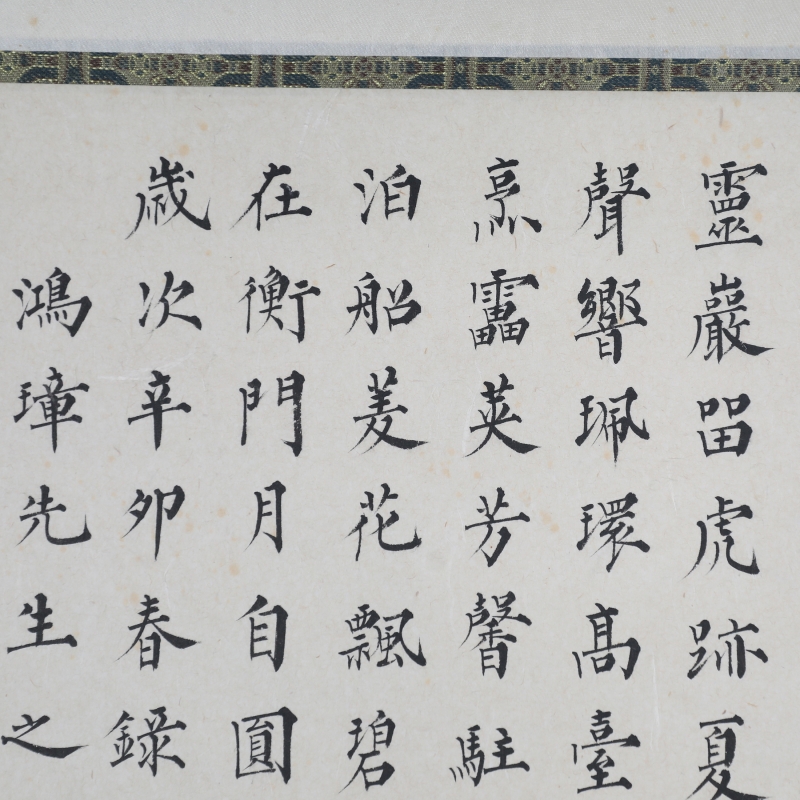 靈巖畱虎跡夏
聲響珮環高臺
烹靁英芳馨駐
泊船菱花飄碧
在衡門月自圓
歲次辛卯春錄
鴻璋先生之